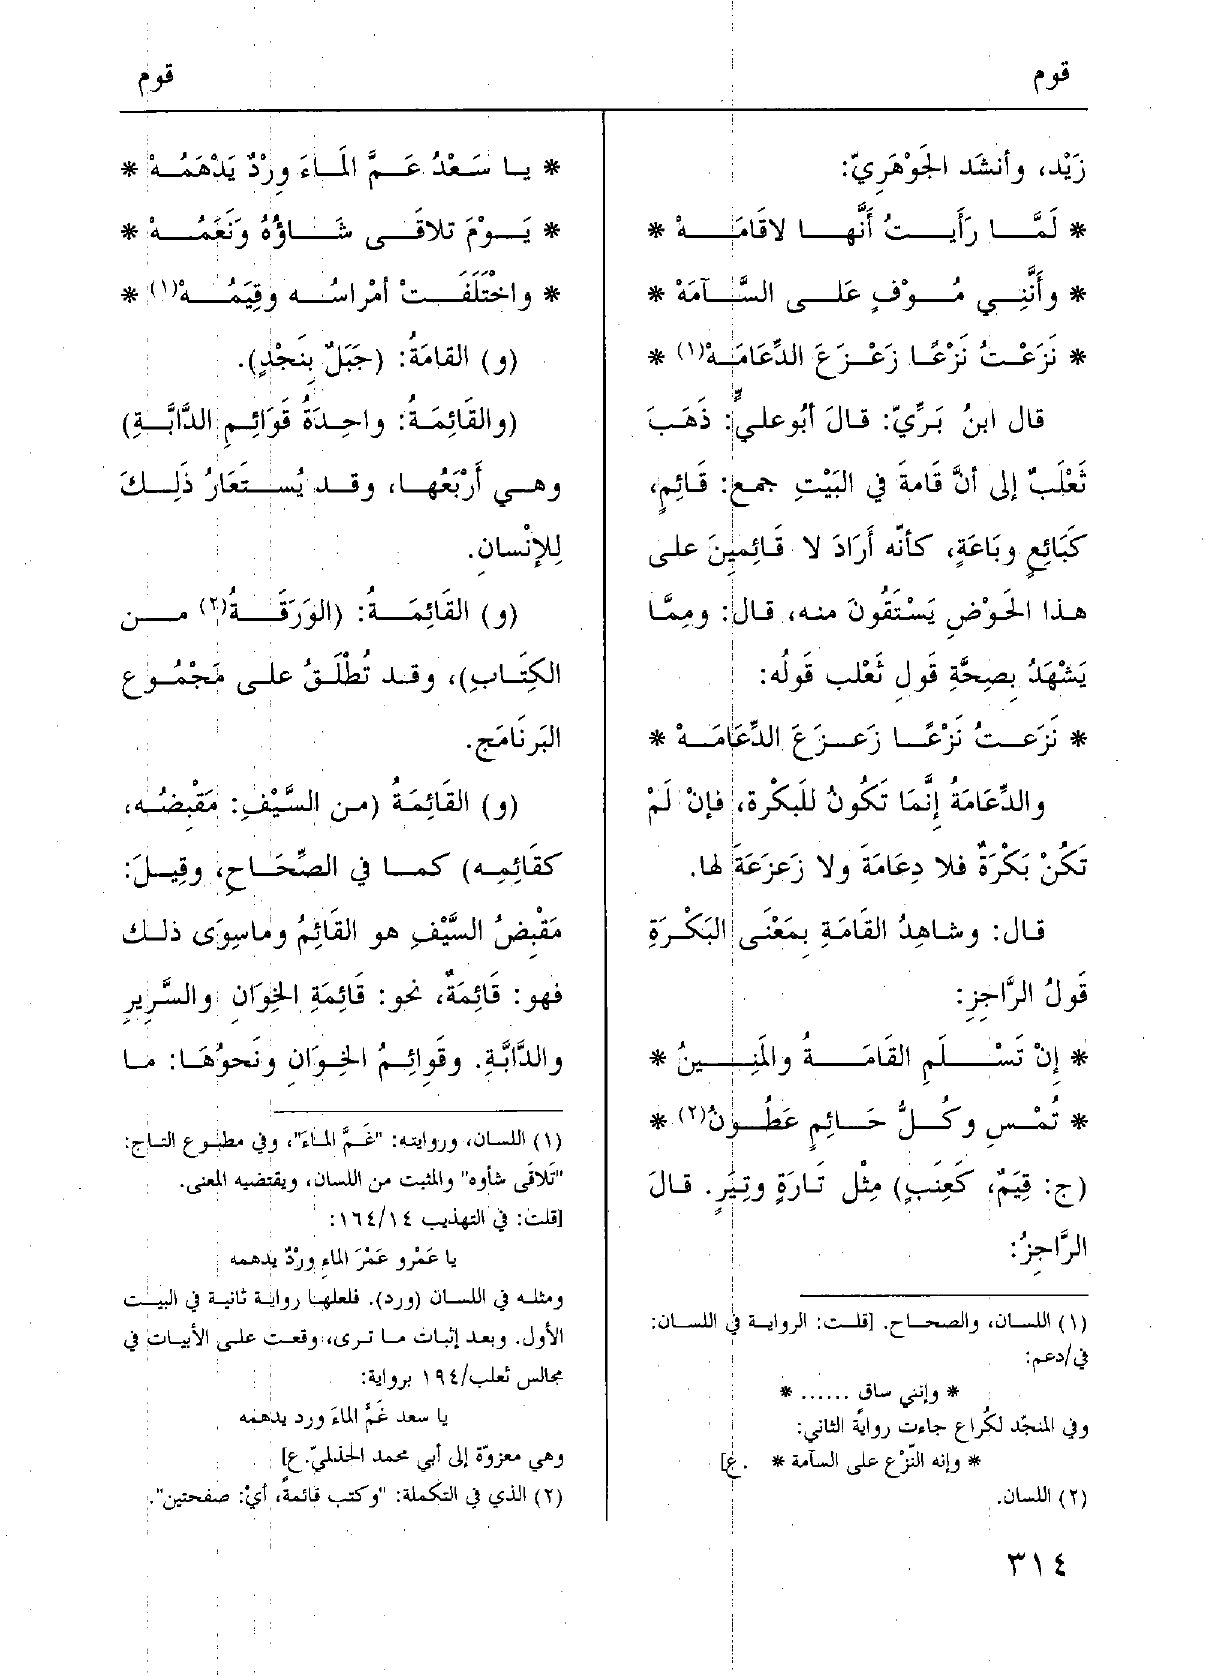 قوم
قوم
زَيْد، وأنشَد الجَوْهَرِيّ:
* لَمَّا رَأَيتُ أَنَّها لاقَامَهْ *
* وأَنَّنِي مُوْفٍ عَلى السَّآمَهْ *
* نَزَعْتُ نَزْعًا زَعْزَعَ الدِّعَامَهْ(١) *
قال ابنُ بَرِّيّ: قالَ أَبُوعليٍّ: ذَهَبَ
ثَعْلَبٌ إلى أنَّ قَامةَ في البَيْتِ جمع: قَائِمٍ،
كَبَائِعٍ وبَاعَةٍ، كأنّه أَرَادَ لا قَائِمينَ على
هذا الحَوْضِ يَسْتَقُونَ منه، قال: ومِمَّا
يَشْهَدُ بِصِحَّةِ قَولِ ثَعْلب قَولُه:
* نَزَعتُ نَزْعًا زَعزَعَ الدِّعَامَهْ *
والدِّعَامَةُ إِنَّمَا تَكُونُ للبَكْرة، فإنْ لَمْ
تَكُنْ بَكْرَةٌ فلا دِعَامَةَ ولا زَعزَعَةَ لها.
قال: وشاهِدُ القَامَةِ بِمَعْنَى البَكْرَةِ
قَولُ الرَّاجِزِ:
* إِنْ تَسْلَمِ القَامَةُ والمَنِينُ *
* تُمْسِ وكُلُّ حَائِمٍ عَطُونُ(٢) *
(ج: قِيَمٌ، كَعِنَبٍ) مِثْل تَارَةٍ وتِيَرٍ. قالَ
الرَّاجِزُ:
(١) اللسان، والصحاح. [قلت: الرواية في اللسان:
في/دعم:
* وإنني ساق ...... *
وفي المنجّد لكُراع جاءت روايةُ الثاني:
* وإنه النّزْع على السآمة * .ع]
(٢) اللسان.
* يا سَعْدُ عَمَّ المَاءَ وِرْدٌ يَدْهَمُهْ *
* يَوْمَ تلاقَى شَاؤُهُ ونَعَمُهْ *
* واخْتَلَفَتْ أَمْراسُه وقِيَمُهْ(١) *
(و) القامَةُ: (جَبَلٌ بِنَجْدٍ).
(والقَائِمَةُ: واحِدَةُ قَوَائِمِ الدَّابَّةِ)
وهي أَرْبَعُها، وقد يُستَعَارُ ذَلِكَ
لِلإنْسانِ.
(و) القَائِمَةُ: (الوَرَقَةُ(٢) من
الكِتَابِ)، وقد تُطْلَقُ على مَجْمُوعِ
البَرنَامَج.
(و) القَائِمَةُ (من السَّيْفِ: مَقْبِضُه،
كقَائِمِه) كما في الصِّحَاحِ، وقِيلَ:
مَقْبِضُ السَّيْفِ هو القَائِمُ وماسِوَى ذلك
فهو: قَائِمَةٌ، نحو: قَائِمَةِ الخِوَانِ والسَّرِيرِ
والدَّابَّةِ. وقَوائِمُ الخِوَانِ ونَحوُهَا: ما
(١) اللسان، وروايته: "غَمَّ الماءَ"، وفي مطبوع التاج:
"تَلاقَى شأوه" والمثبت من اللسان، ويقتضيه المعنى.
[قلت: في التهذيب ١٦٤/١٤:
يا عَمْرو عَمْرَ الماءِ وِرْدٌ يدهمه
ومثله في اللسان (ورد). فلعلها رواية ثانية في البيت
الأول. وبعد إثبات ما ترى، وقعت على الأبيات في
مجالس ثعلب/١٩٤ برواية:
يا سعد غَمَّ الماءَ ورد يدهمه
وهي معزوّة إلى أبي محمد الحذلميّ.ع]
(٢) الذي في التكملة: "وكتب قائمةً، أيْ: صفحتين".
٣١٤